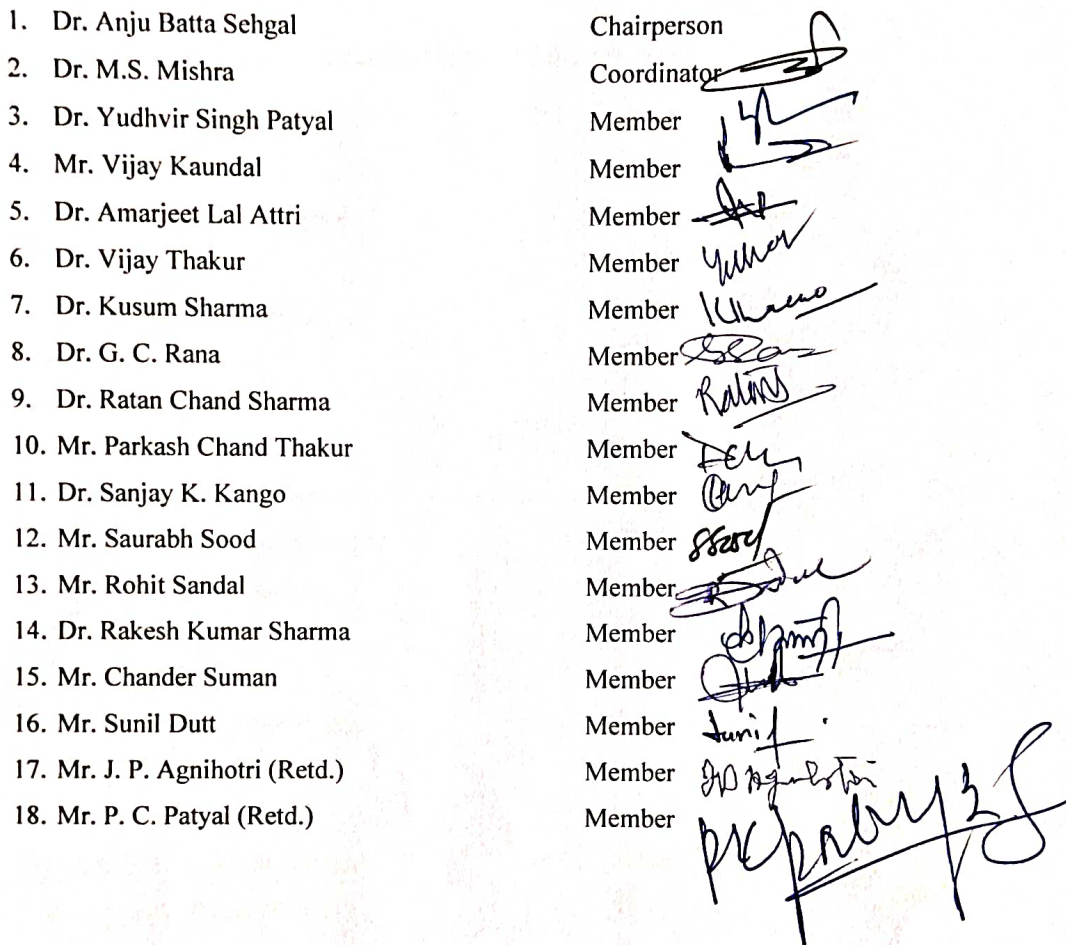 1. Dr. Anju Batta Sehgal Chairperson
2. Dr. M.S. Mishra Coordinator
3. Dr. Yudhvir Singh Patyal Member
4. Mr. Vijay Kaundal Member
5. Dr. Amarjeet Lal Attri Member
6. Dr. Vijay Thakur Member
7. Dr. Kusum Sharma Member
8. Dr. G. C. Rana Member
9. Dr. Ratan Chand Sharma Member
10. Mr. Parkash Chand Thakur Member
11. Dr. Sanjay K. Kango Member
12. Mr. Saurabh Sood Member SSood
13. Mr. Rohit Sandal Member
14. Dr. Rakesh Kumar Sharma Member
15. Mr. Chander Suman Member
16. Mr. Sunil Dutt Member
17. Mr. J. P. Agnihotri (Retd.) Member
18. Mr. P. C. Patyal (Retd.) Member